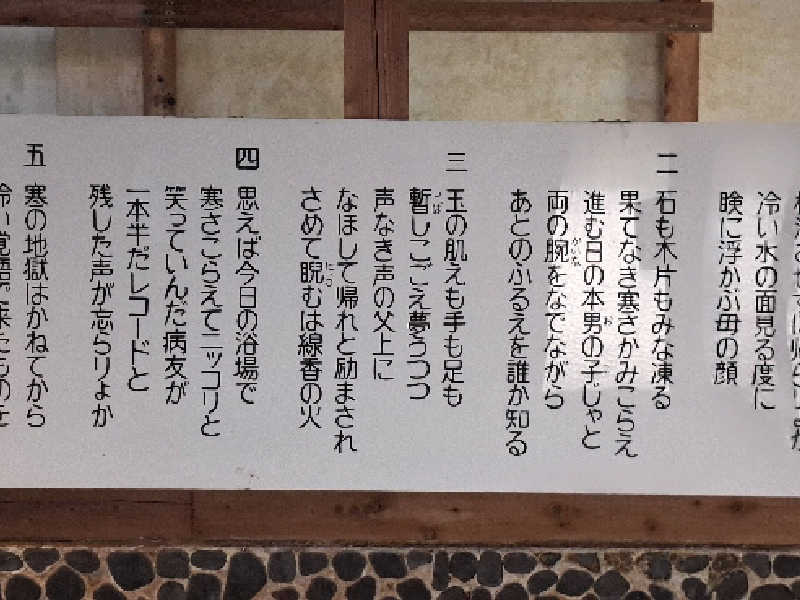 冷い水の面見る度に
瞼に浮かぶ母の顔
二 石も木片もみな凍る
果てなき寒さかみこらえ
進む日の本男の子じゃと
両の腕をなでながら
あとのふるえを誰か知る
三 玉の肌えも手も足も
暫しこごえ夢うつつ
声なき声の父上に
なほして帰れと励まされ
さめて睨むは線香の火
四 思えば今日の浴場で
寒さこらえてニッコリと
笑っていんだ病友が
一本半だレコードと
残した声が忘らりょか
五 寒の地獄はかねてから